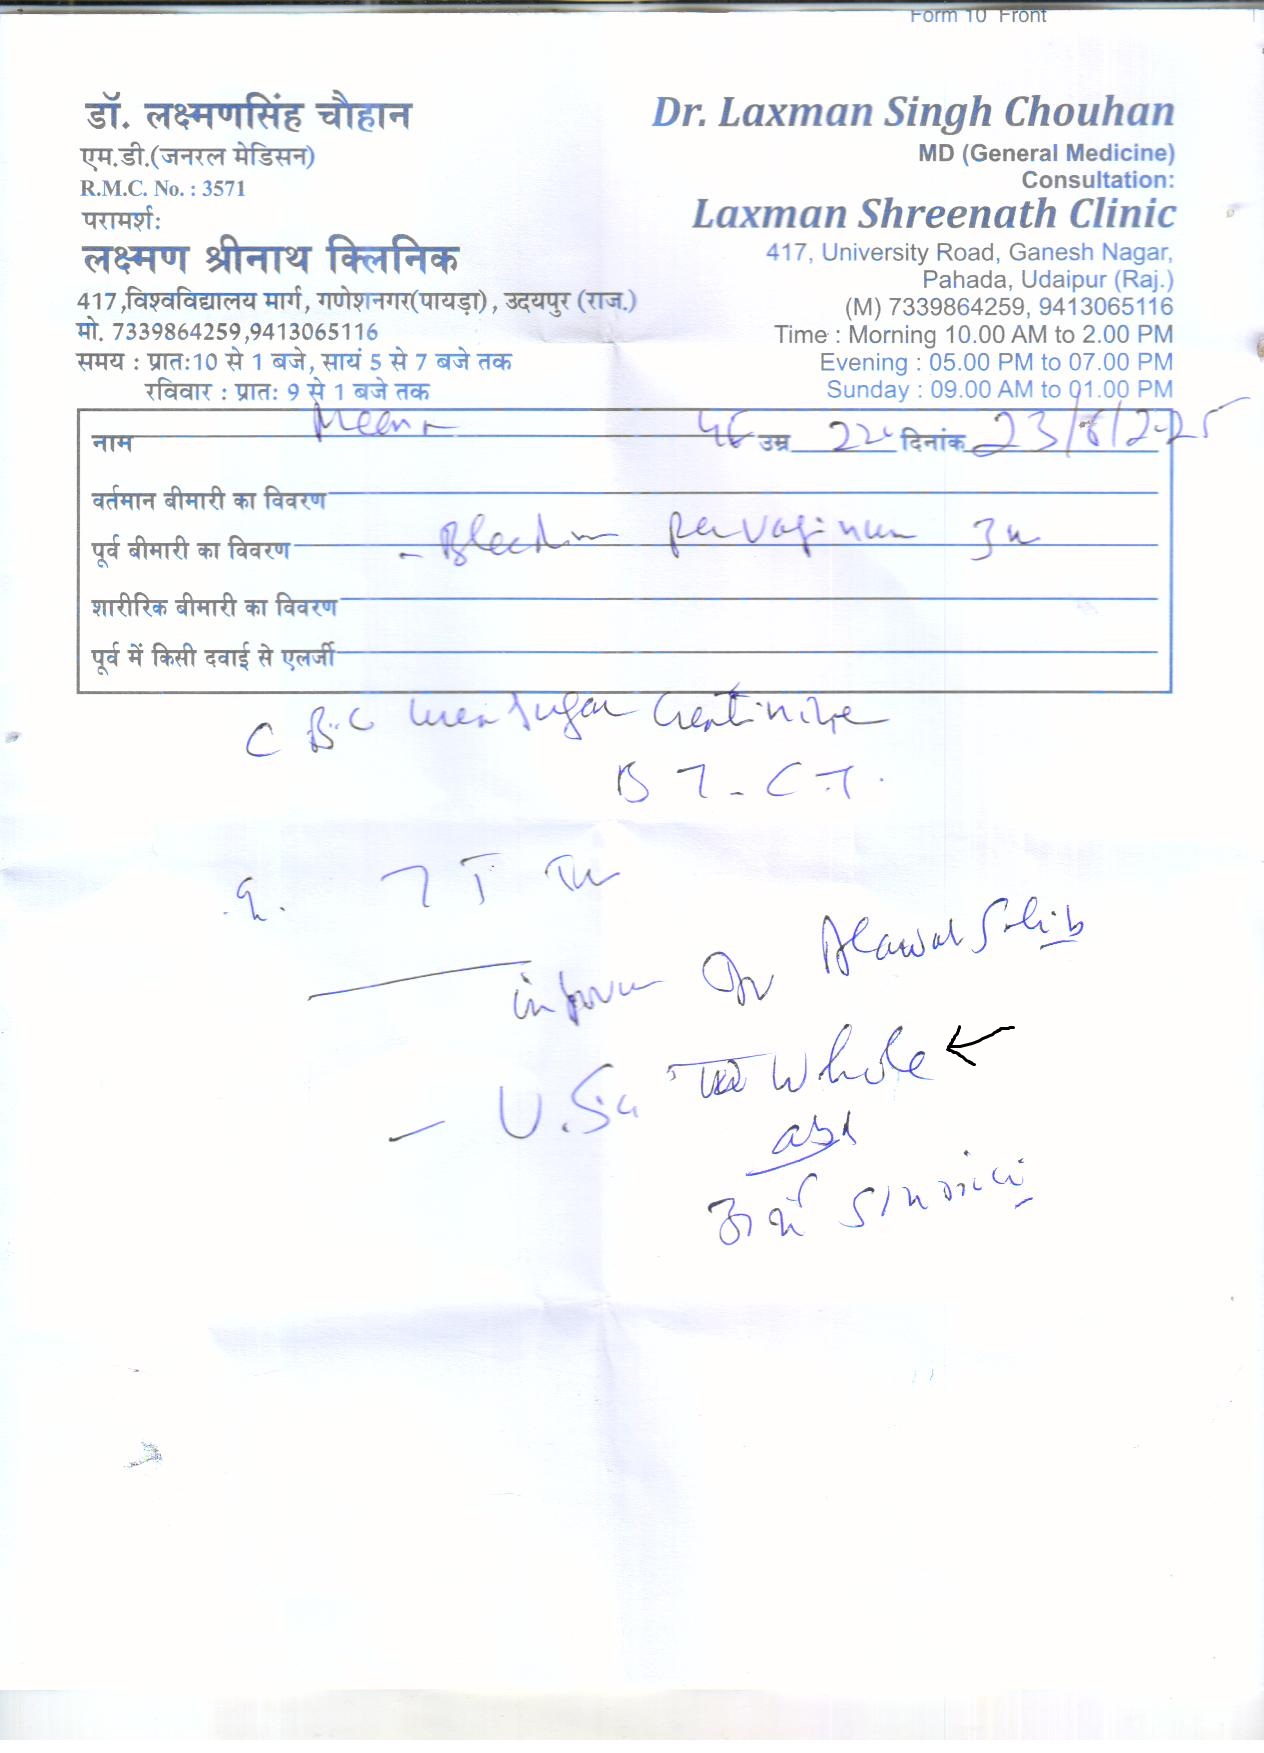 Form 10 Front
डॉ. लक्ष्मणसिंह चौहान
एम.डी.(जनरल मेडिसन)
R.M.C. No. : 3571
परामर्श:
लक्ष्मण श्रीनाथ क्लिनिक
417,विश्वविद्यालय मार्ग, गणेशनगर(पायड़ा), उदयपुर (राज.)
मो. 7339864259,9413065116
समय : प्रात:10 से 1 बजे, सायं 5 से 7 बजे तक
रविवार : प्रात: 9 से 1 बजे तक
Dr. Laxman Singh Chouhan
MD (General Medicine)
Consultation:
Laxman Shreenath Clinic
417, University Road, Ganesh Nagar,
Pahada, Udaipur (Raj.)
(M) 7339864259, 9413065116
Time : Morning 10.00 AM to 2.00 PM
Evening : 05.00 PM to 07.00 PM
Sunday : 09.00 AM to 01.00 PM
नाम उम्र दिनांक 23/6/2025
वर्तमान बीमारी का विवरण
पूर्व बीमारी का विवरण
शारीरिक बीमारी का विवरण
पूर्व में किसी दवाई से एलर्जी
CBC Sugar Creatinine
BT-CT.
inform Dr
- Whole
abd